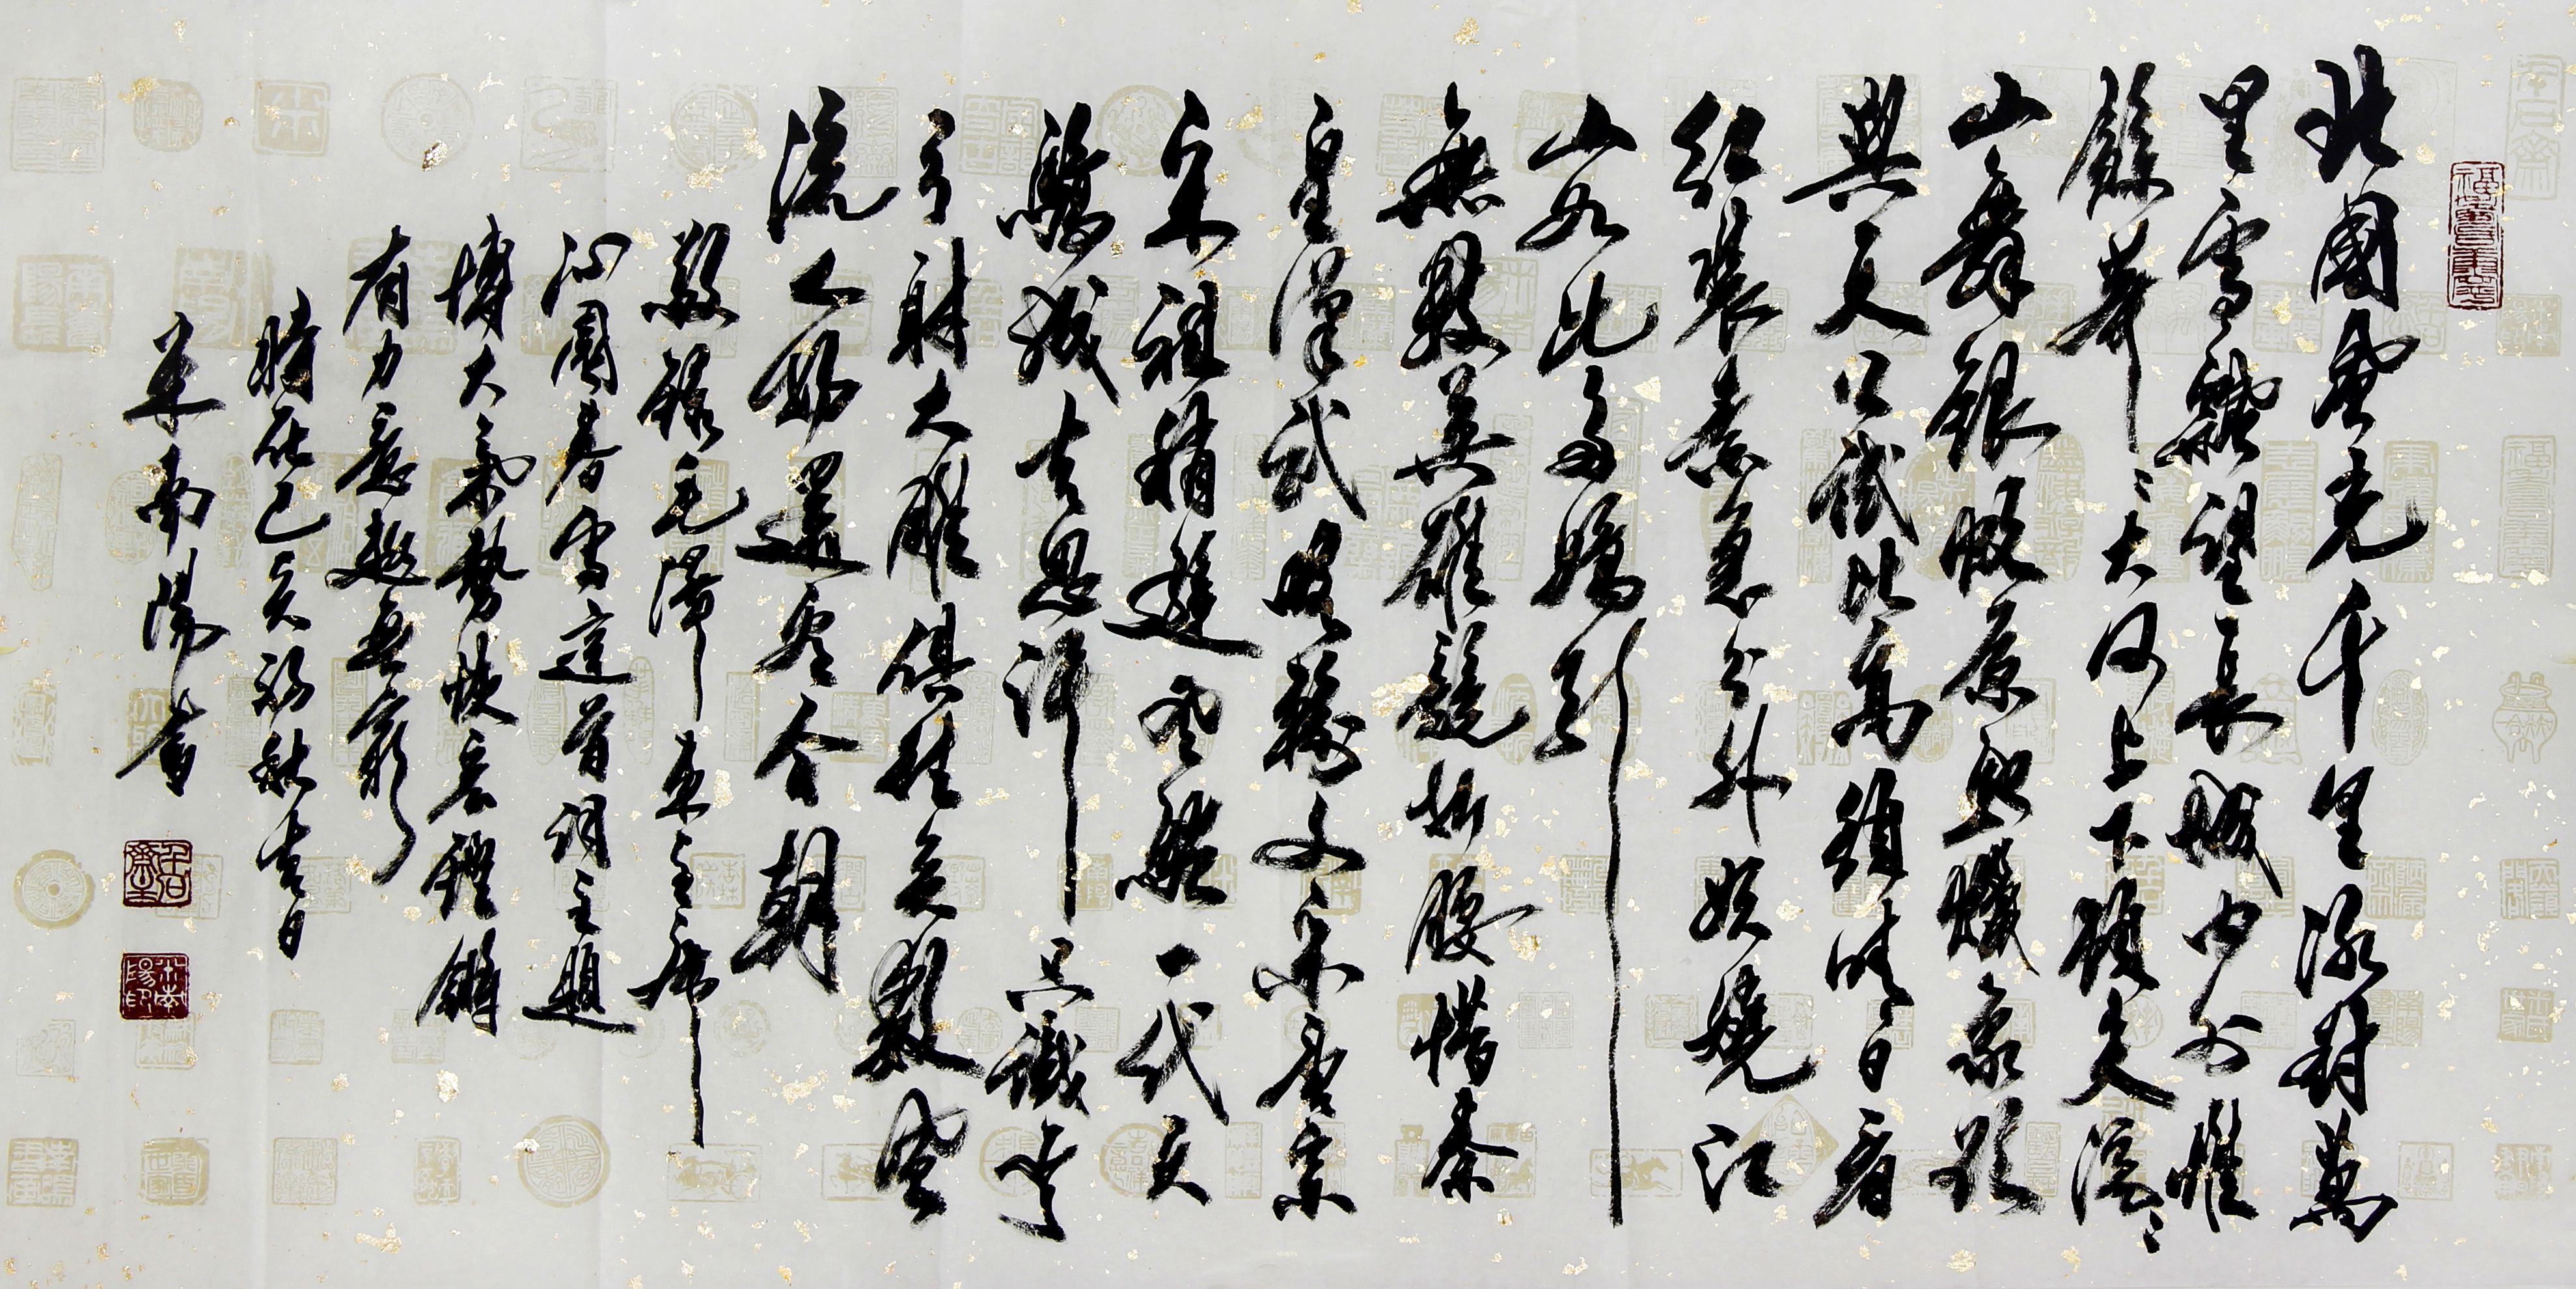 北國風光千里冰封萬
里雪飄望長城内外惟
餘莽〻大河上下頓失滔〻
山舞銀蛇原馳蠟象欲
與天公試比高須晴日看
紅裝素裹分外妖嬈江
山如此多嬌引
無數英雄競折腰惜秦
皇漢武略輸文采唐宗
宋祖稍遜風騷一代天
驕成吉思汗只識彎
弓射大雕俱往矣數風
流人物還看今朝
敬錄毛澤東主席
沁園春雪這首詞主題
博大氣勢恢宏鏗鏘
有力意趣無窮
時在己亥初秋吉日
米南陽書
米南陽印